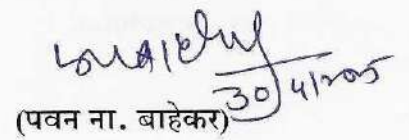 30/4/2025
(पवन ना. बाहेकर)